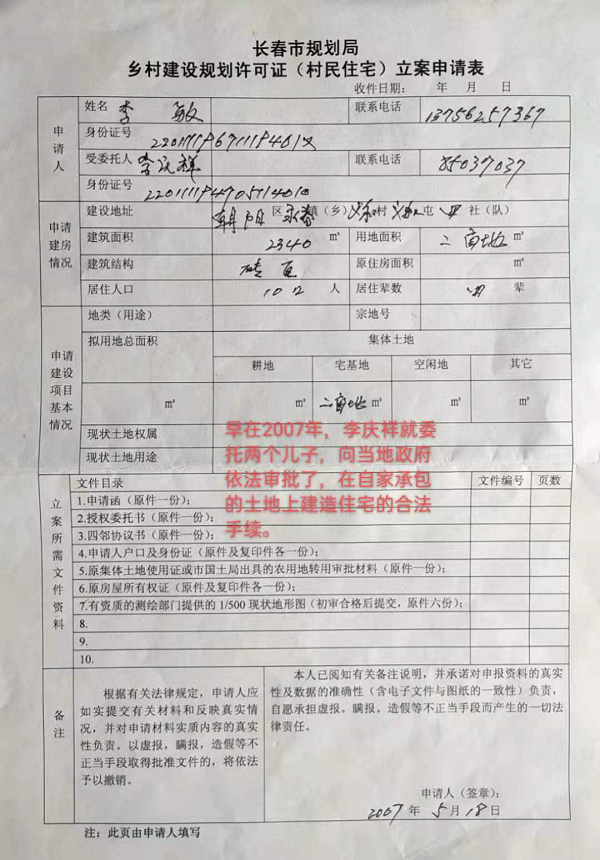 长春市规划局
乡村建设规划许可证（村民住宅）立案申请表
收件日期： 年 月 日
申请人
姓名 李敏 联系电话 13756257367
身份证号
受委托人 李庆祥 联系电话 85037037
身份证号
申请建房情况
建设地址 朝阳区永春镇（乡） 村 屯 四 社（队）
建筑面积 2340 m² 用地面积 二亩地 m²
建筑结构 砖瓦 原住房面积 m²
居住人口 10 人 居住辈数 四 辈
申请建设项目基本情况
地类（用途） 宗地号
拟用地总面积 集体土地
耕地 宅基地 空闲地 其它
m² m² 二亩地 m² m² m²
现状土地权属
现状土地用途
早在2007年，李庆祥就委
托两个儿子，向当地政府
依法审批了，在自家承包
的土地上建造住宅的合法
手续。
立案所需文件资料
文件目录 文件编号 页数
1.申请函（原件一份）；
2.授权委托书（原件一份）；
3.四邻协议书（原件一份）；
4.申请人户口及身份证（原件及复印件各一份）；
5.原集体土地使用证或市国土局出具的农用地转用审批材料（原件一份）；
6.原房屋所有权证（原件及复印件各一份）；
7.有资质的测绘部门提供的 1/500 现状地形图（初审合格后提交，原件六份）；
8.
9.
10.
备注
根据有关法律规定，申请人应
如实提交有关材料和反映真实情
况，并对申请材料实质内容的真实
性负责。以虚报，瞒报，造假等不
正当手段取得批准文件的，将依法
予以撤销。
本人已阅知有关备注说明，并承诺对申报资料的真实
性及数据的准确性（含电子文件与图纸的一致性）负责，
自愿承担虚报。瞒报。造假等不正当手段而产生的一切法
律责任。
申请人（签章）：
2007 年 5 月 18 日
注：此页由申请人填写